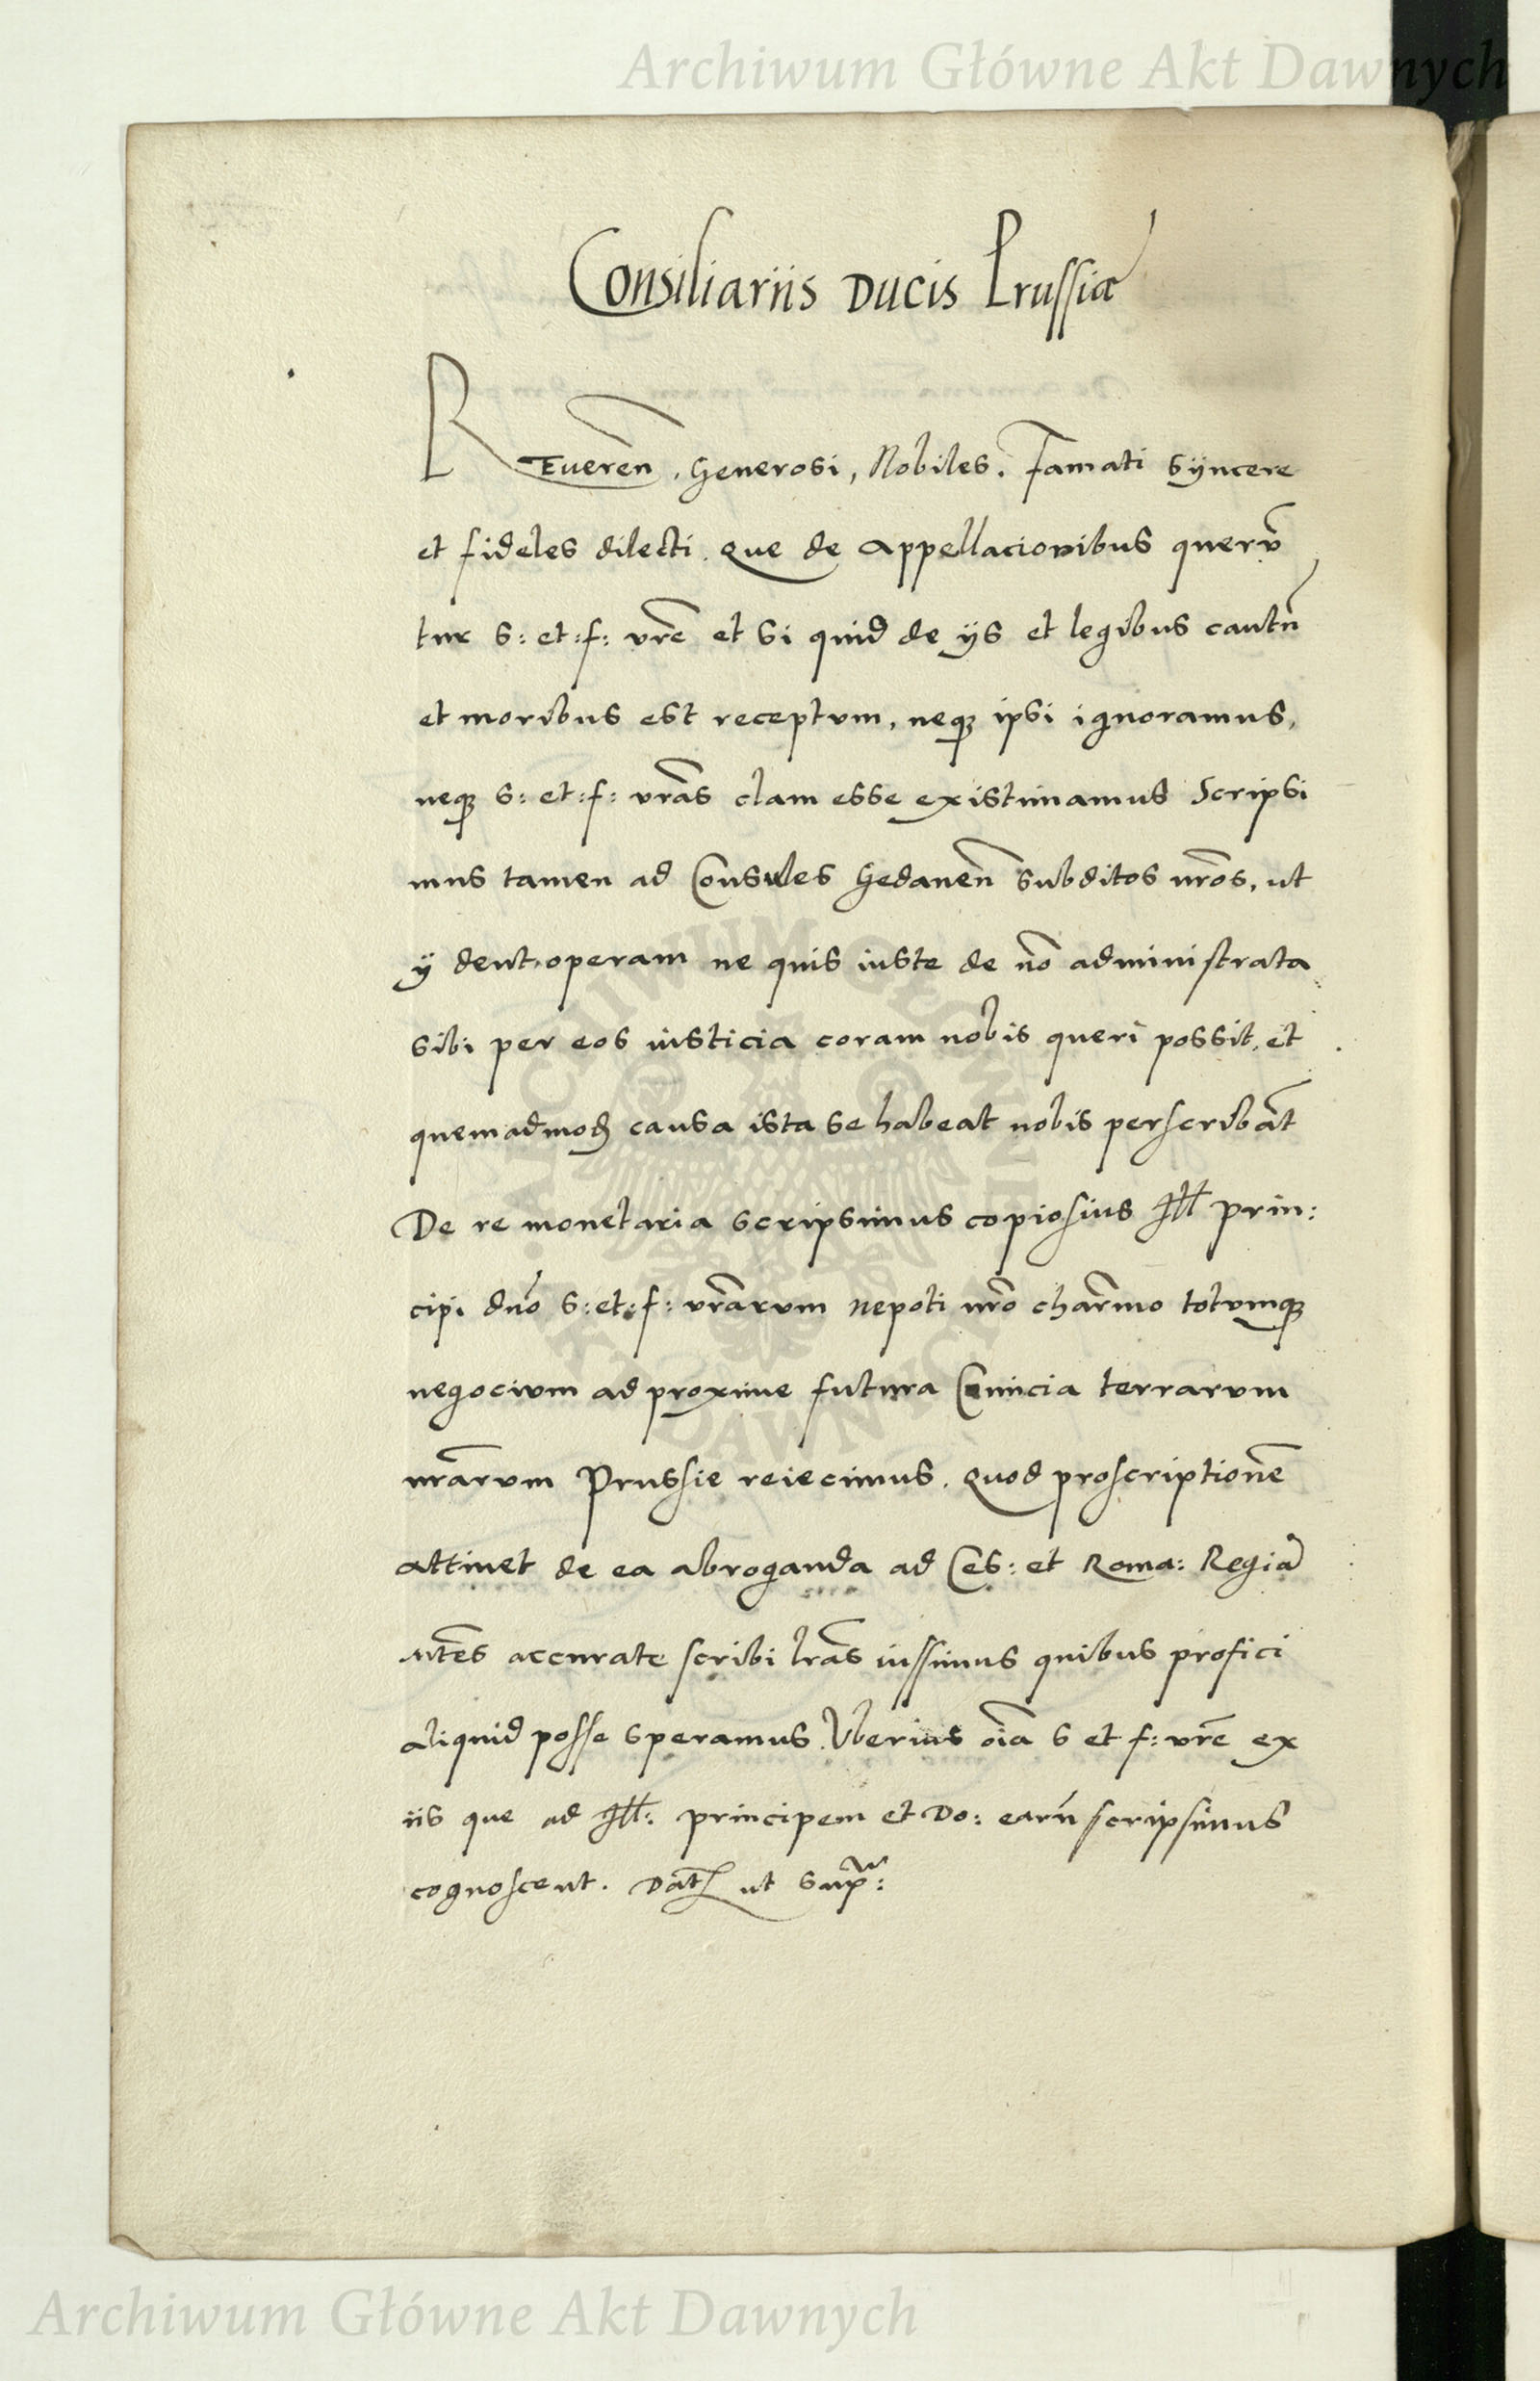 Archiwum Główne Akt Dawnych
Consiliariis Ducis Prussiæ
Reueren̄, Generosi, Nobiles, Famati sÿncere
et fideles dilecti. Que de appellacionibus querū
tur s: et: f: vrē et si quid de ÿs et legibus cautū
et moribus est receptum, neqꝫ ipsi ignoramus,
neqꝫ s: et: f: vrās clam esse existimamus Scripsi
mus tamen ad Consules Gedanen̄ subditos nrōs, ut
ÿ dent operam ne quis iuste de nō administrata
sibi per eos iusticia coram nobis queri possit, et
quemadmoꝺ causa ista se habeat nobis perscribāt
De re monetaria scripsimus copiosius Ill prin:
cipi dnō s: et: f: vrārum nepoti nrō charm̄o totumqꝫ
negocium ad proxime futura Comicia terrarum
nrārum Prussie reiecimus. Quod proscriptionē
attinet de ea abroganda ad Ces: et Roma: Regiā
Mtēs accurate scribi lrās iussimus quibus profici
aliquid posse speramus. Vberius oīa s et f: vrē ex
iis que ad Ill: principem et Do: earū scripsimus
cognoscent. Datꝭ ut supᵃ:
ARCHIWUM GŁÓWNE AKT DAWNYCH
Archiwum Główne Akt Dawnych